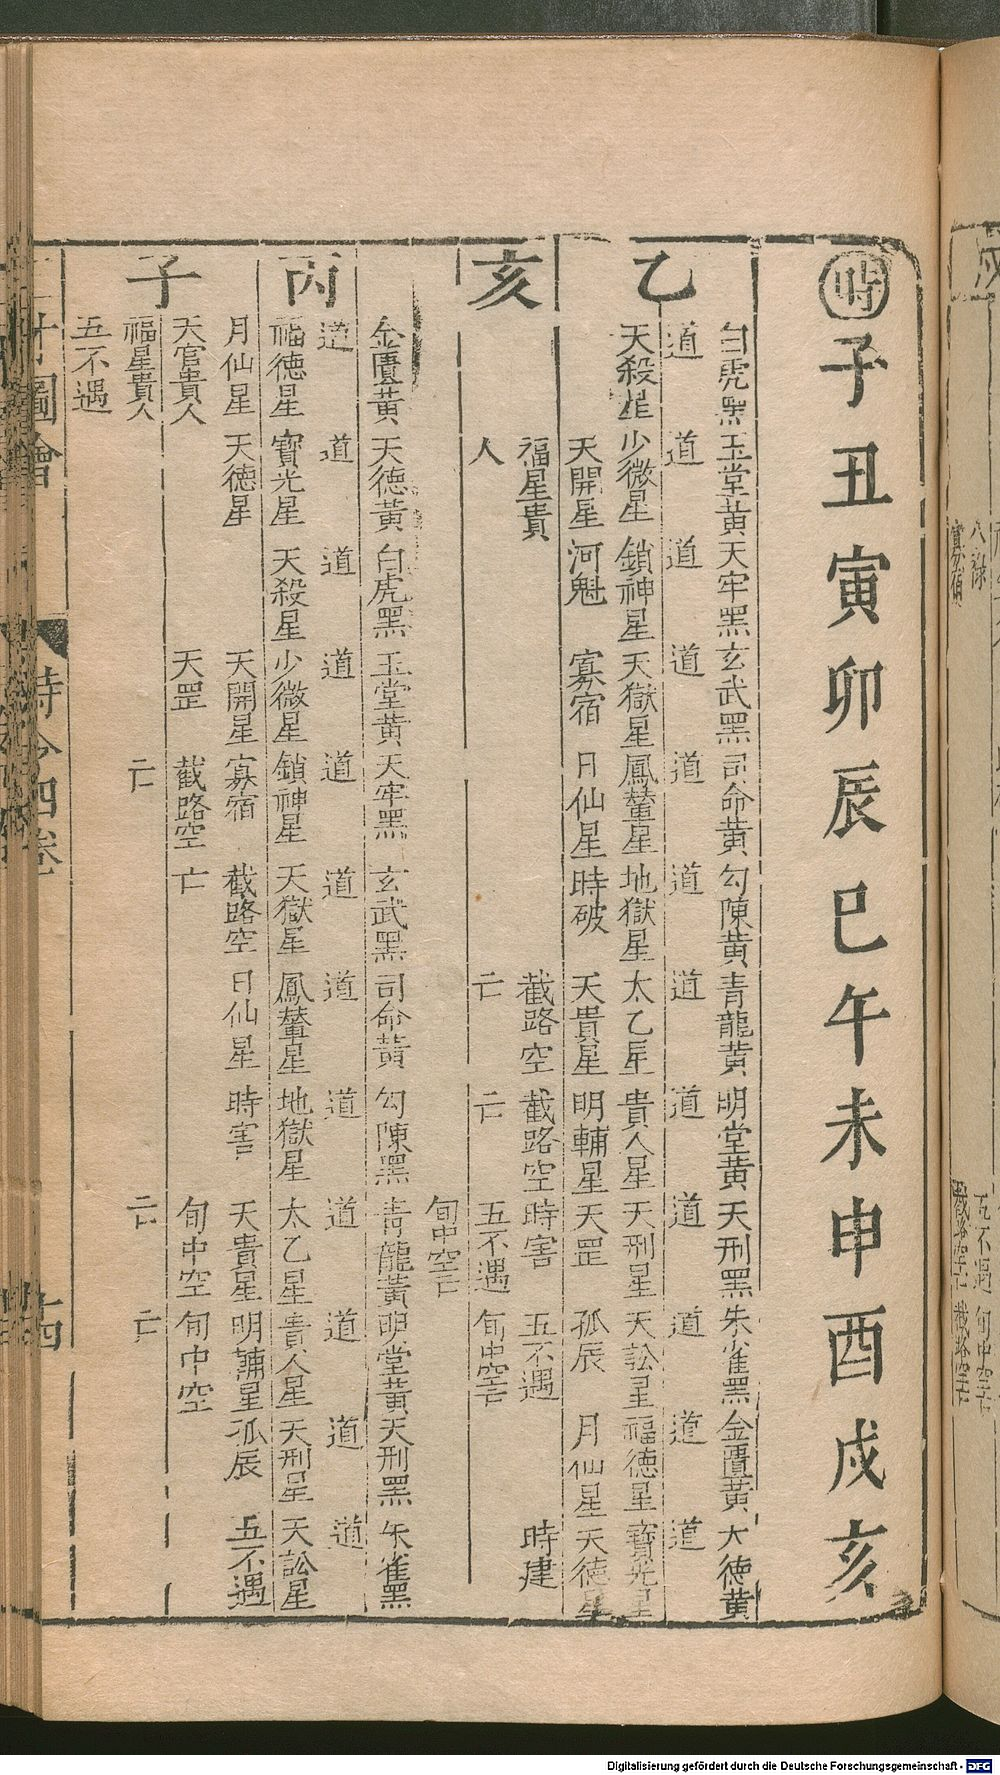 時子丑寅卯辰巳午未申酉戌亥
白虎黑玉堂黃天牢黑玄武黑司命黃勾陳黃青龍黃明堂黃天刑黑朱雀黑金匱黃大德黃
乙道道道道道道道道道道道道
天殺星少微星鎖神星天獄星鳳輦星地獄星太乙星貴人星天刑星天訟星福德星寶光星
天開星河魁寡宿日仙星時破天貴星明輔星天罡孤辰月仙星天德星
亥福星貴截路空截路空時害五不遇時建
人亡亡五不遇旬中空亡
旬中空亡
金匱黃天德黃白虎黑玉堂黃天牢黑玄武黑司命黃勾陳黑青龍黃明堂黃天刑黑朱雀黑
丙道道道道道道道道道道道道
福德星寶光星天殺星少微星鎖神星天獄星鳳輦星地獄星太乙星貴人星天刑星天訟星
月仙星天德星天開星寡宿截路空日仙星時害天貴星明輔星孤辰五不遇
子天官貴人天罡截路空亡旬中空旬中空
福星貴人亡亡亡
五不遇
圖會
時令四卷
十四
寡宿
截路空亡
五不遇
旬中空亡
截路空亡
Digitalisierung gefördert durch die Deutsche Forschungsgemeinschaft - DFG